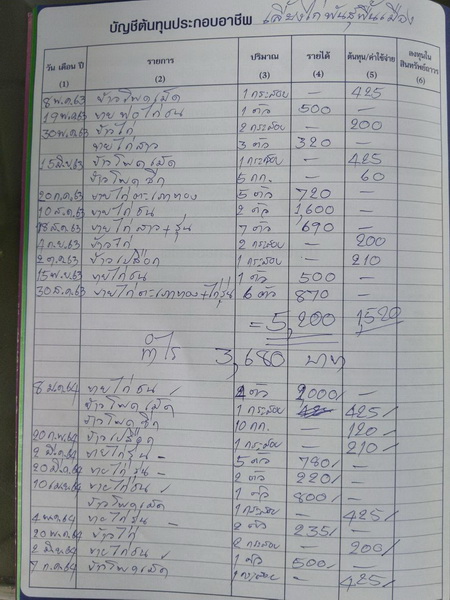 บัญชีต้นทุนประกอบอาชีพ เลี้ยงไก่พันธุ์พื้นเมือง
วัน เดือน ปี รายการ ปริมาณ รายได้ ต้นทุน/ค่าใช้จ่าย ลงทุนในสินทรัพย์ถาวร
(1) (2) (3) (4) (5) (6)
8 พ.ค.63 ข้าวโพดเม็ด 1 กระสอบ — 425
19 พ.ค.63 ขาย ไก่ชน 1 ตัว 500 —
30 พ.ค.63 ข้าวไก่ 2 กระสอบ — 200
ขายไก่สาว 3 ตัว 320 —
15 มิ.ย.63 ข้าวโพดเม็ด 1 กระสอบ — 425
ข้าวโพดซีก 5 กก. — 60
20 ก.ค.63 ขายไก่ตะเภาทอง 5 ตัว 720 —
10 ส.ค.63 ขายไก่ชน 2 ตัว 1,600 —
18 ส.ค.63 ขายไก่สาว+รุ่น 7 ตัว 690 —
ก.ย.63 ข้าวไก่ 2 กระสอบ — 200
2 ต.ค.63 ข้าวเปลือก 1 กระสอบ — 210
15 พ.ย.63 ขายไก่ชน 1 ตัว 500 —
30 ธ.ค.63 ขายไก่ตะเภาทอง+ไก่รุ่น 6 ตัว 870 —
= 5,200 1520
กำไร 3,680 บาท
8 ม.ค.64 ขายไก่ชน / ตัว 2000/ —
ข้าวโพดเม็ด 1 กระสอบ 425/
ข้าวโพดซีก 10 กก. — 120/
20 ก.พ.64 ข้าวเปลือก 1 กระสอบ — 210/
2 มี.ค.64 ขายไก่รุ่น – 5 ตัว 780/ —
20 มี.ค.64 ขายไก่รุ่น – 2 ตัว 220/ —
10 เม.ย.64 ขายไก่ชน / 1 ตัว 800/ —
ข้าวโพดเม็ด 1 กระสอบ — 425/
4 พ.ค.64 ขายไก่รุ่น – 2 ตัว 235/ —
20 พ.ค.64 ข้าวไก่ 2 กระสอบ — 200/
2 มิ.ย.64 ขายไก่ชน / 1 ตัว 500/ —
7 ก.ค.64 ข้าวโพดเม็ด 1 กระสอบ — 425/